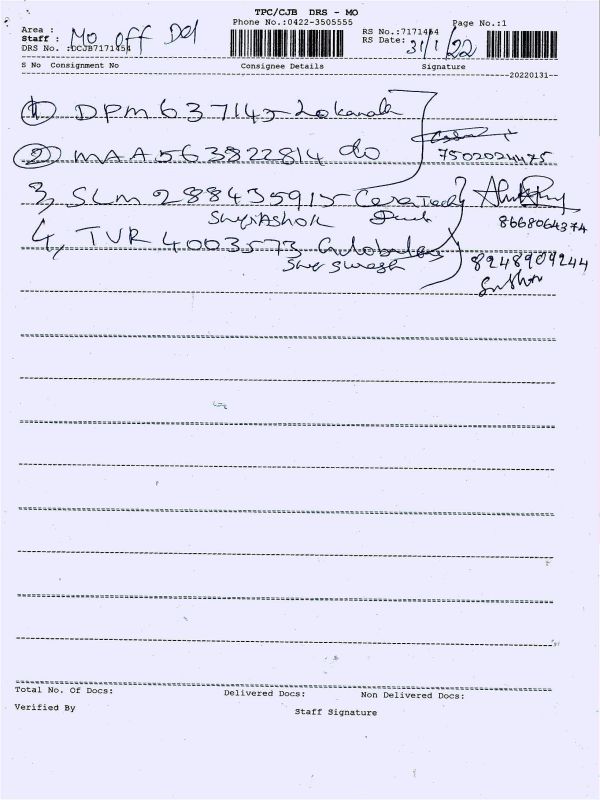 TPC/CJB DRS - MO
Phone No.:0422-3505555 Page No.:1
Area :
Staff : Mo off Del
RS No.:7171454
RS Date: 31/1/22
DRS No. :DCJB7171454
S No Consignment No Consignee Details Signature
20220131
1 DPM637145 Lokanath
2 MAA563822814 do 7502024475
3, SLM 288435915
Ashok 8668064374
4, TVR 4003573 8248909244
Suresh
Total No. Of Docs: Delivered Docs: Non Delivered Docs:
Verified By Staff Signature